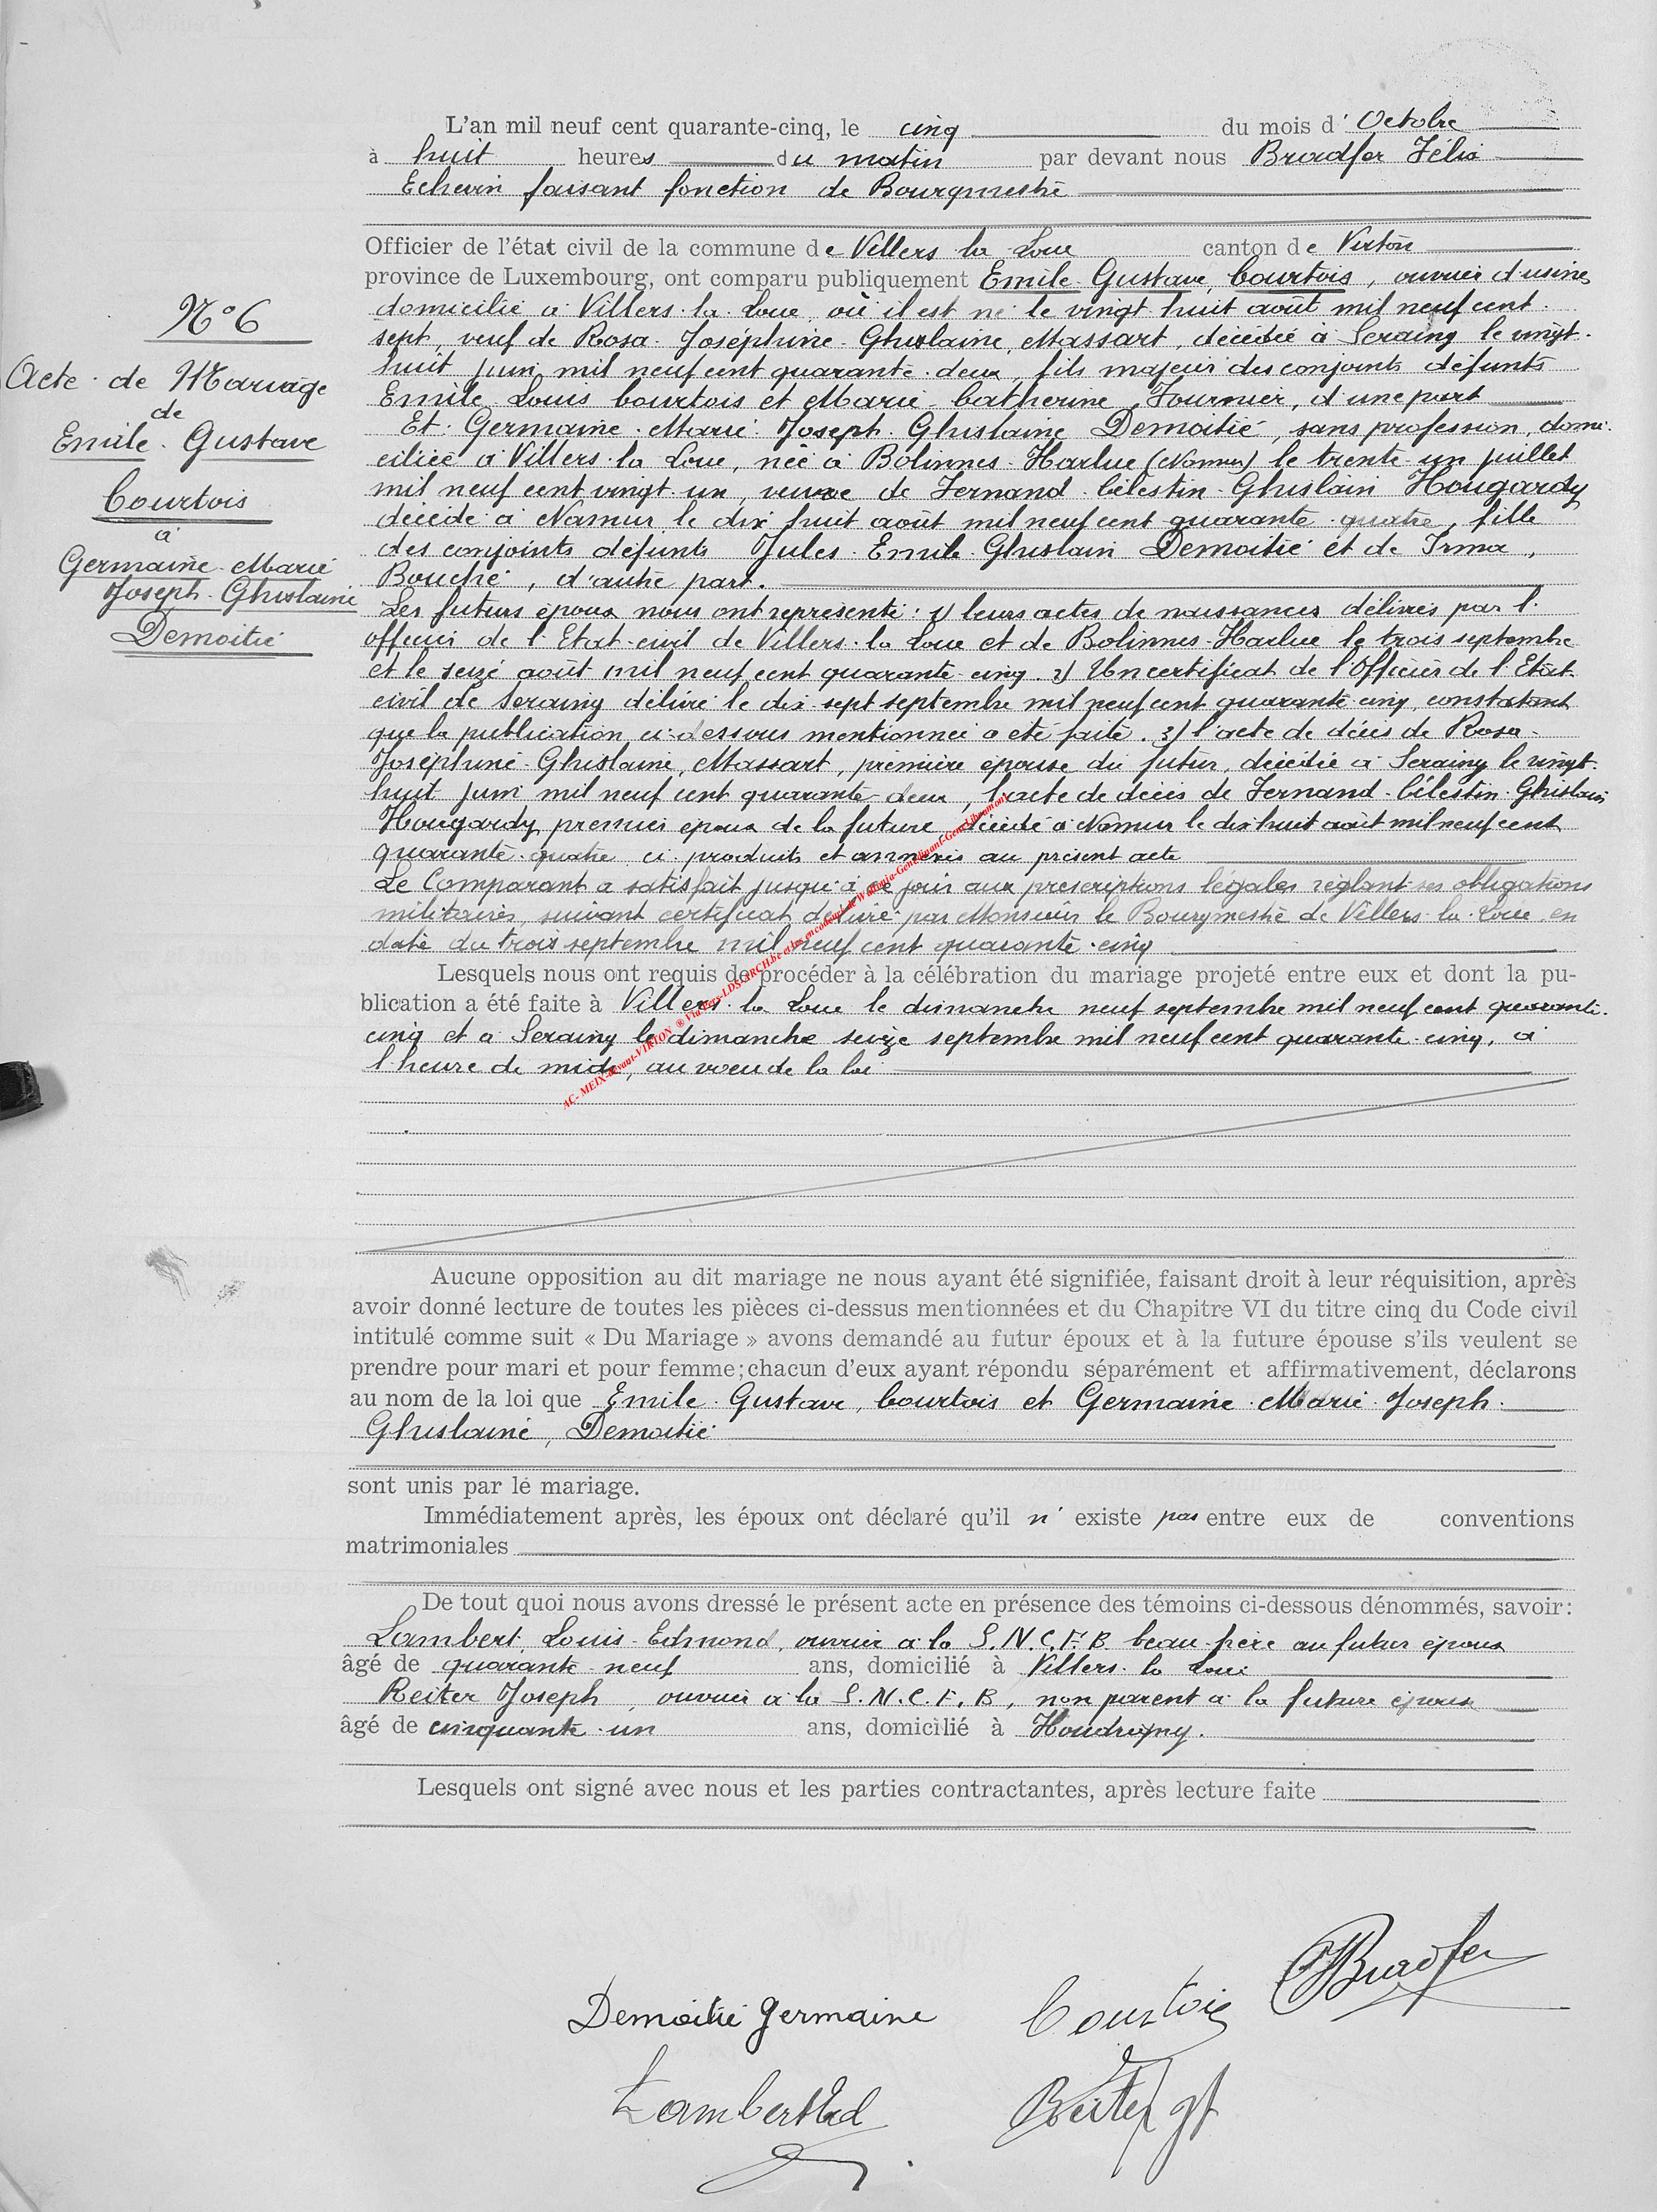 L'an mil neuf cent quarante-cinq, le cinq du mois d' Octobre
à huit heures du matin par devant nous Bradfer Félix
Echevin faisant fonction de Bourgmestre
Officier de l'état civil de la commune de Villers la Loue canton de Virton
province de Luxembourg, ont comparu publiquement Emile Gustave, Courtois, ouvrier d'usine,
domicilié à Villers-la-Loue où il est né le vingt huit août mil neuf cent
sept, veuf de Rosa-Joséphine-Ghislaine, Massart, décédée à Seraing le vingt-
huit juin mil neuf cent quarante-deux, fils majeur des conjoints défunts
Emile Louis Courtois et Marie-Catherine Fournier, d'une part
Et: Germaine-Marie-Joseph-Ghislaine Demoitié, sans profession, domi-
ciliée à Villers-la-Loue, née à Bolinnes-Harlue (Namur) le trente-un juillet
mil neuf cent vingt-un, veuve de Fernand-Célestin-Ghislain Hougardy
décédé à Namur le dix huit août mil neuf cent quarante-quatre, fille
des conjoints défunts Jules-Emile-Ghislain Demoitié et de Irma,
Bouché, d'autre part.
N° 6
Acte de Mariage
de
Emile-Gustave
Courtois
à
Germaine-Marie
Joseph-Ghislaine
Demoitié
Les futurs époux nous ont représenté: 1) leurs actes de naissances délivrés par l'
officier de l'Etat-civil de Villers-la-Loue et de Bolinnes-Harlue le trois septembre
et le seize août mil neuf cent quarante-cinq. 2) Un certificat de l'Officier de l'Etat-
civil de Seraing délivré le dix-sept septembre mil neuf cent quarante cinq, constatant
que la publication ci-dessous mentionnée a été faite. 3) l'acte de décès de Rosa-
Joséphine-Ghislaine, Massart, première épouse du futur, décédée à Seraing le vingt-
huit juin mil neuf cent quarante-deux, l'acte de décès de Fernand-Célestin-Ghislain
Hougardy premier époux de la future, décédé à Namur le dix huit août mil neuf cent
quarante-quatre ci-produits et annexés au présent acte
Le Comparant a satisfait jusqu'à ce jour aux prescriptions légales réglant ses obligations
militaires, suivant certificat délivré par Monsieur le Bourgmestre de Villers-la-Loue en
date du trois septembre mil neuf cent quarante-cinq
Lesquels nous ont requis de procéder à la célébration du mariage projeté entre eux et dont la pu-
blication a été faite à Villers-la-Loue le dimanche neuf septembre mil neuf cent quarante-
cinq et à Seraing le dimanche seize septembre mil neuf cent quarante-cinq, à
l'heure de midi, au voeu de la loi
Aucune opposition au dit mariage ne nous ayant été signifiée, faisant droit à leur réquisition, après
avoir donné lecture de toutes les pièces ci-dessus mentionnées et du Chapitre VI du titre cinq du Code civil
intitulé comme suit « Du Mariage » avons demandé au futur époux et à la future épouse s'ils veulent se
prendre pour mari et pour femme; chacun d'eux ayant répondu séparément et affirmativement, déclarons
au nom de la loi que Emile-Gustave, Courtois et Germaine-Marie-Joseph-
Ghislaine, Demoitié
sont unis par le mariage.
Immédiatement après, les époux ont déclaré qu'il n' existe pas entre eux de conventions
matrimoniales
De tout quoi nous avons dressé le présent acte en présence des témoins ci-dessous dénommés, savoir:
Lambert Louis-Edmond, ouvrier à la S.N.C.F.B. beau-frère au futur époux
âgé de quarante-neuf ans, domicilié à Villers-la-Loue
Reiter Joseph, ouvrier à la S.N.C.F.B, non parent à la future épouse
âgé de cinquante-un ans, domicilié à Houdrigny.
Lesquels ont signé avec nous et les parties contractantes, après lecture faite
Bradfer
Demoitié Germaine Courtois
Lambert Ed Reiter Jh